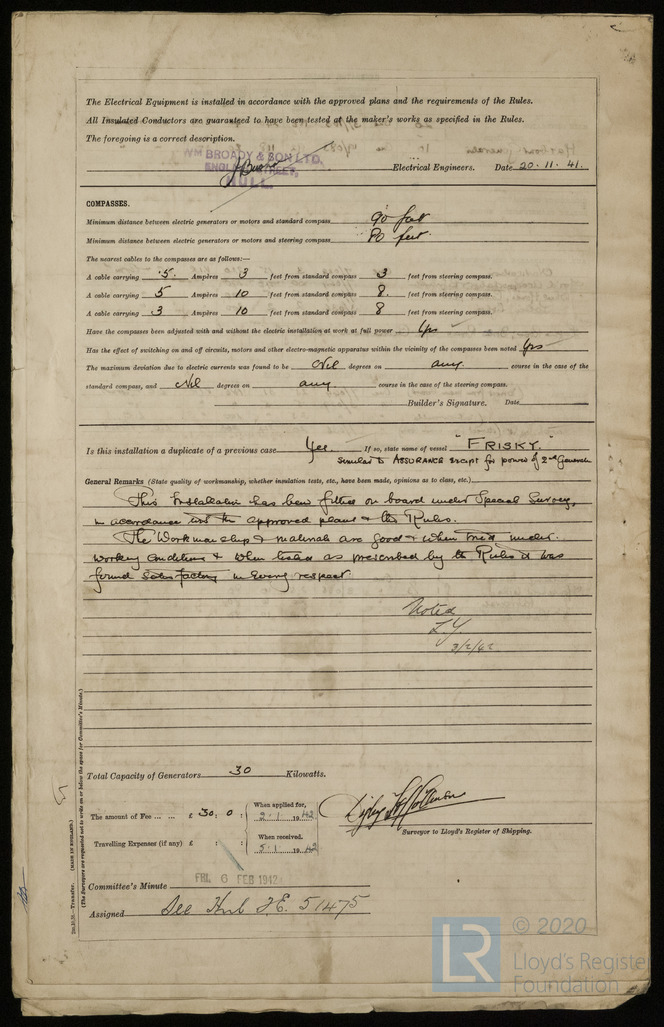 The Electrical Equipment is installed in accordance with the approved plans and the requirements of the Rules.
All Insulated Conductors are guaranteed to have been tested at the maker's works as specified in the Rules.
The foregoing is a correct description.
WM BROADY & SON LTD.
ENGLISH STREET,
HULL.
Electrical Engineers. Date 20.11.41.
COMPASSES.
Minimum distance between electric generators or motors and standard compass 90 feet
Minimum distance between electric generators or motors and steering compass 80 feet.
The nearest cables to the compasses are as follows:—
A cable carrying .5. Ampères 3 feet from standard compass 3 feet from steering compass.
A cable carrying 5 Ampères 10 feet from standard compass 8. feet from steering compass.
A cable carrying 3 Ampères 10 feet from standard compass 8 feet from steering compass.
Have the compasses been adjusted with and without the electric installation at work at full power Yes
Has the effect of switching on and off circuits, motors and other electro-magnetic apparatus within the vicinity of the compasses been noted Yes
The maximum deviation due to electric currents was found to be Nil degrees on any. course in the case of the
standard compass, and Nil degrees on any. course in the case of the steering compass.
Builder's Signature. Date
Is this installation a duplicate of a previous case Yes. If so, state name of vessel "FRISKY."
Similar to ASSURANCE except for power of 2nd Generator
General Remarks (State quality of workmanship, whether insulation tests, etc., have been made, opinions as to class, etc.)
This Installation has been fitted on board under Special Survey,
in accordance with the approved plans & the Rules.
The Workmanship & materials are good & when tried under
working conditions & when tested as prescribed by the Rules it was
found satisfactory in every respect
Noted
3/2/42
Total Capacity of Generators 30 Kilowatts.
The amount of Fee ... ... £ 30 : 0 : When applied for, 2.1.1942
Travelling Expenses (if any) £ : : When received. 5.1.1942
Surveyor to Lloyd's Register of Shipping.
Committee's Minute FRI. 6 FEB 1942
Assigned See Hul F.E. 51475
2m.10.38.—Transfer. (MADE IN ENGLAND.)
(The Surveyors are requested not to write on or below the space for Committee's Minute.)
© 2020
LR Lloyd's Register
Foundation